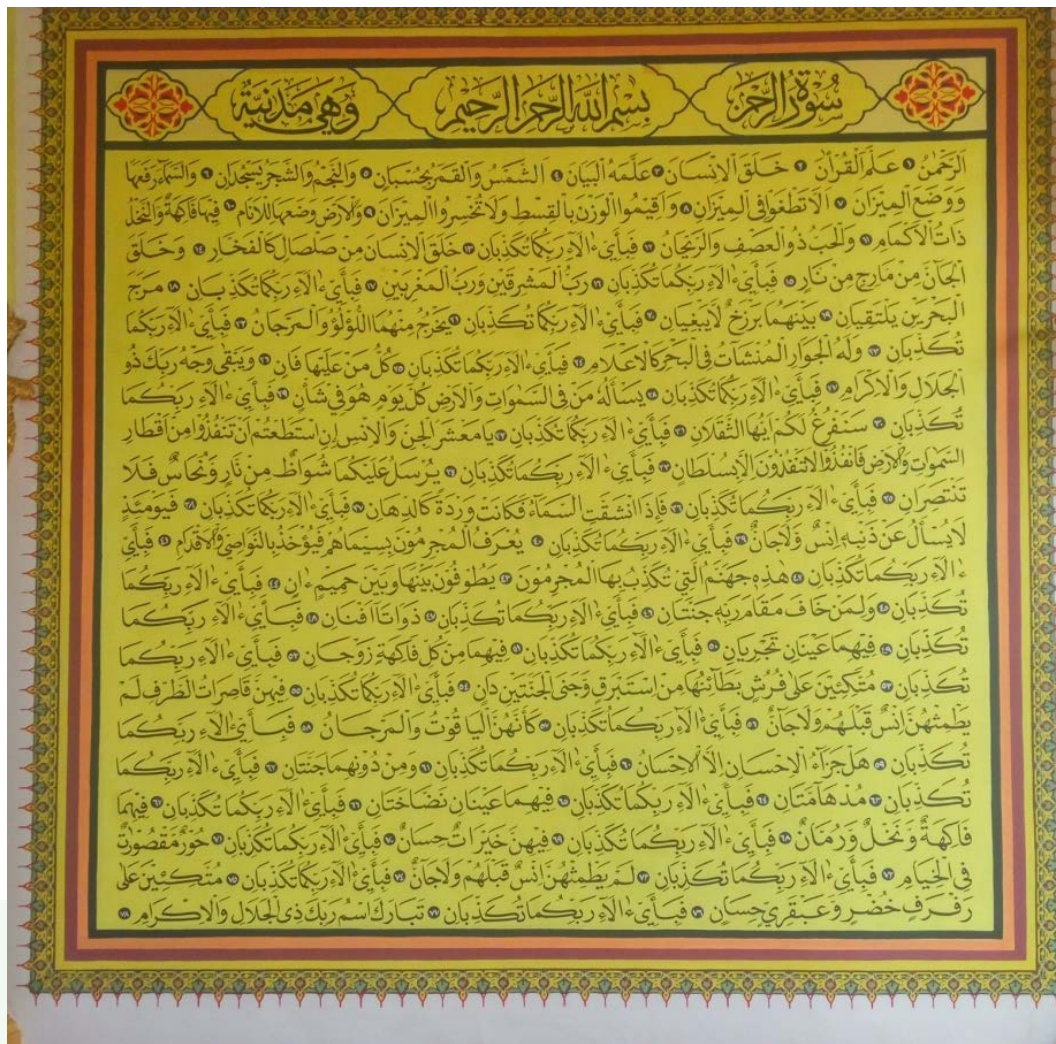 سورة الرحمن بسم الله الرحمن الرحيم وهي مدنية
الرحمن ١ علم القرآن ٢ خلق الانسان ٣ علمه البيان ٤ الشمس والقمر بحسبان ٥ والنجم والشجر يسجدان ٦ والسماء رفعها
ووضع الميزان ٧ الا تطغوا في الميزان ٨ واقيموا الوزن بالقسط ولا تخسروا الميزان ٩ والارض وضعها للانام ١٠ فيها فاكهة والنخل
ذات الاكمام ١١ والحب ذو العصف والريحان ١٢ فبأي ءالاء ربكما تكذبان ١٣ خلق الانسان من صلصال كالفخار ١٤ وخلق
الجان من مارج من نار ١٥ فبأي ءالاء ربكما تكذبان ١٦ رب المشرقين ورب المغربين ١٧ فبأي ءالاء ربكما تكذبان ١٨ مرج
البحرين يلتقيان ١٩ بينهما برزخ لا يبغيان ٢٠ فبأي ءالاء ربكما تكذبان ٢١ يخرج منهما اللؤلؤ والمرجان ٢٢ فبأي ءالاء ربكما
تكذبان ٢٣ وله الجوار المنشآت في البحر كالاعلام ٢٤ فبأي ءالاء ربكما تكذبان ٢٥ كل من عليها فان ٢٦ ويبقى وجه ربك ذو
الجلال والاكرام ٢٧ فبأي ءالاء ربكما تكذبان ٢٨ يسأله من في السموات والارض كل يوم هو في شأن ٢٩ فبأي ءالاء ربكما
تكذبان ٣٠ سنفرغ لكم ايها الثقلان ٣١ فبأي ءالاء ربكما تكذبان ٣٢ يا معشر الجن والانس ان استطعتم ان تنفذوا من اقطار
السموات والارض فانفذوا لا تنفذون الا بسلطان ٣٣ فبأي ءالاء ربكما تكذبان ٣٤ يرسل عليكما شواظ من نار ونحاس فلا
تنتصران ٣٥ فبأي ءالاء ربكما تكذبان ٣٦ فاذا انشقت السماء فكانت وردة كالدهان ٣٧ فبأي ءالاء ربكما تكذبان ٣٨ فيومئذ
لا يسأل عن ذنبه انس ولا جان ٣٩ فبأي ءالاء ربكما تكذبان ٤٠ يعرف المجرمون بسيماهم فيؤخذ بالنواصي والاقدام ٤١ فبأي
ءالاء ربكما تكذبان ٤٢ هذه جهنم التي تكذب بها المجرمون ٤٣ يطوفون بينها وبين حميم ءان ٤٤ فبأي ءالاء ربكما
تكذبان ٤٥ ولمن خاف مقام ربه جنتان ٤٦ فبأي ءالاء ربكما تكذبان ٤٧ ذواتا افنان ٤٨ فبأي ءالاء ربكما
تكذبان ٤٩ فيهما عينان تجريان ٥٠ فبأي ءالاء ربكما تكذبان ٥١ فيهما من كل فاكهة زوجان ٥٢ فبأي ءالاء ربكما
تكذبان ٥٣ متكئين على فرش بطائنها من استبرق وجنى الجنتين دان ٥٤ فبأي ءالاء ربكما تكذبان ٥٥ فيهن قاصرات الطرف لم
يطمثهن انس قبلهم ولا جان ٥٦ فبأي ءالاء ربكما تكذبان ٥٧ كأنهن الياقوت والمرجان ٥٨ فبأي ءالاء ربكما
تكذبان ٥٩ هل جزاء الاحسان الا الاحسان ٦٠ فبأي ءالاء ربكما تكذبان ٦١ ومن دونهما جنتان ٦٢ فبأي ءالاء ربكما
تكذبان ٦٣ مدهامتان ٦٤ فبأي ءالاء ربكما تكذبان ٦٥ فيهما عينان نضاختان ٦٦ فبأي ءالاء ربكما تكذبان ٦٧ فيهما
فاكهة ونخل ورمان ٦٨ فبأي ءالاء ربكما تكذبان ٦٩ فيهن خيرات حسان ٧٠ فبأي ءالاء ربكما تكذبان ٧١ حور مقصورات
في الخيام ٧٢ فبأي ءالاء ربكما تكذبان ٧٣ لم يطمثهن انس قبلهم ولا جان ٧٤ فبأي ءالاء ربكما تكذبان ٧٥ متكئين على
رفرف خضر وعبقري حسان ٧٦ فبأي ءالاء ربكما تكذبان ٧٧ تبارك اسم ربك ذي الجلال والاكرام ٧٨